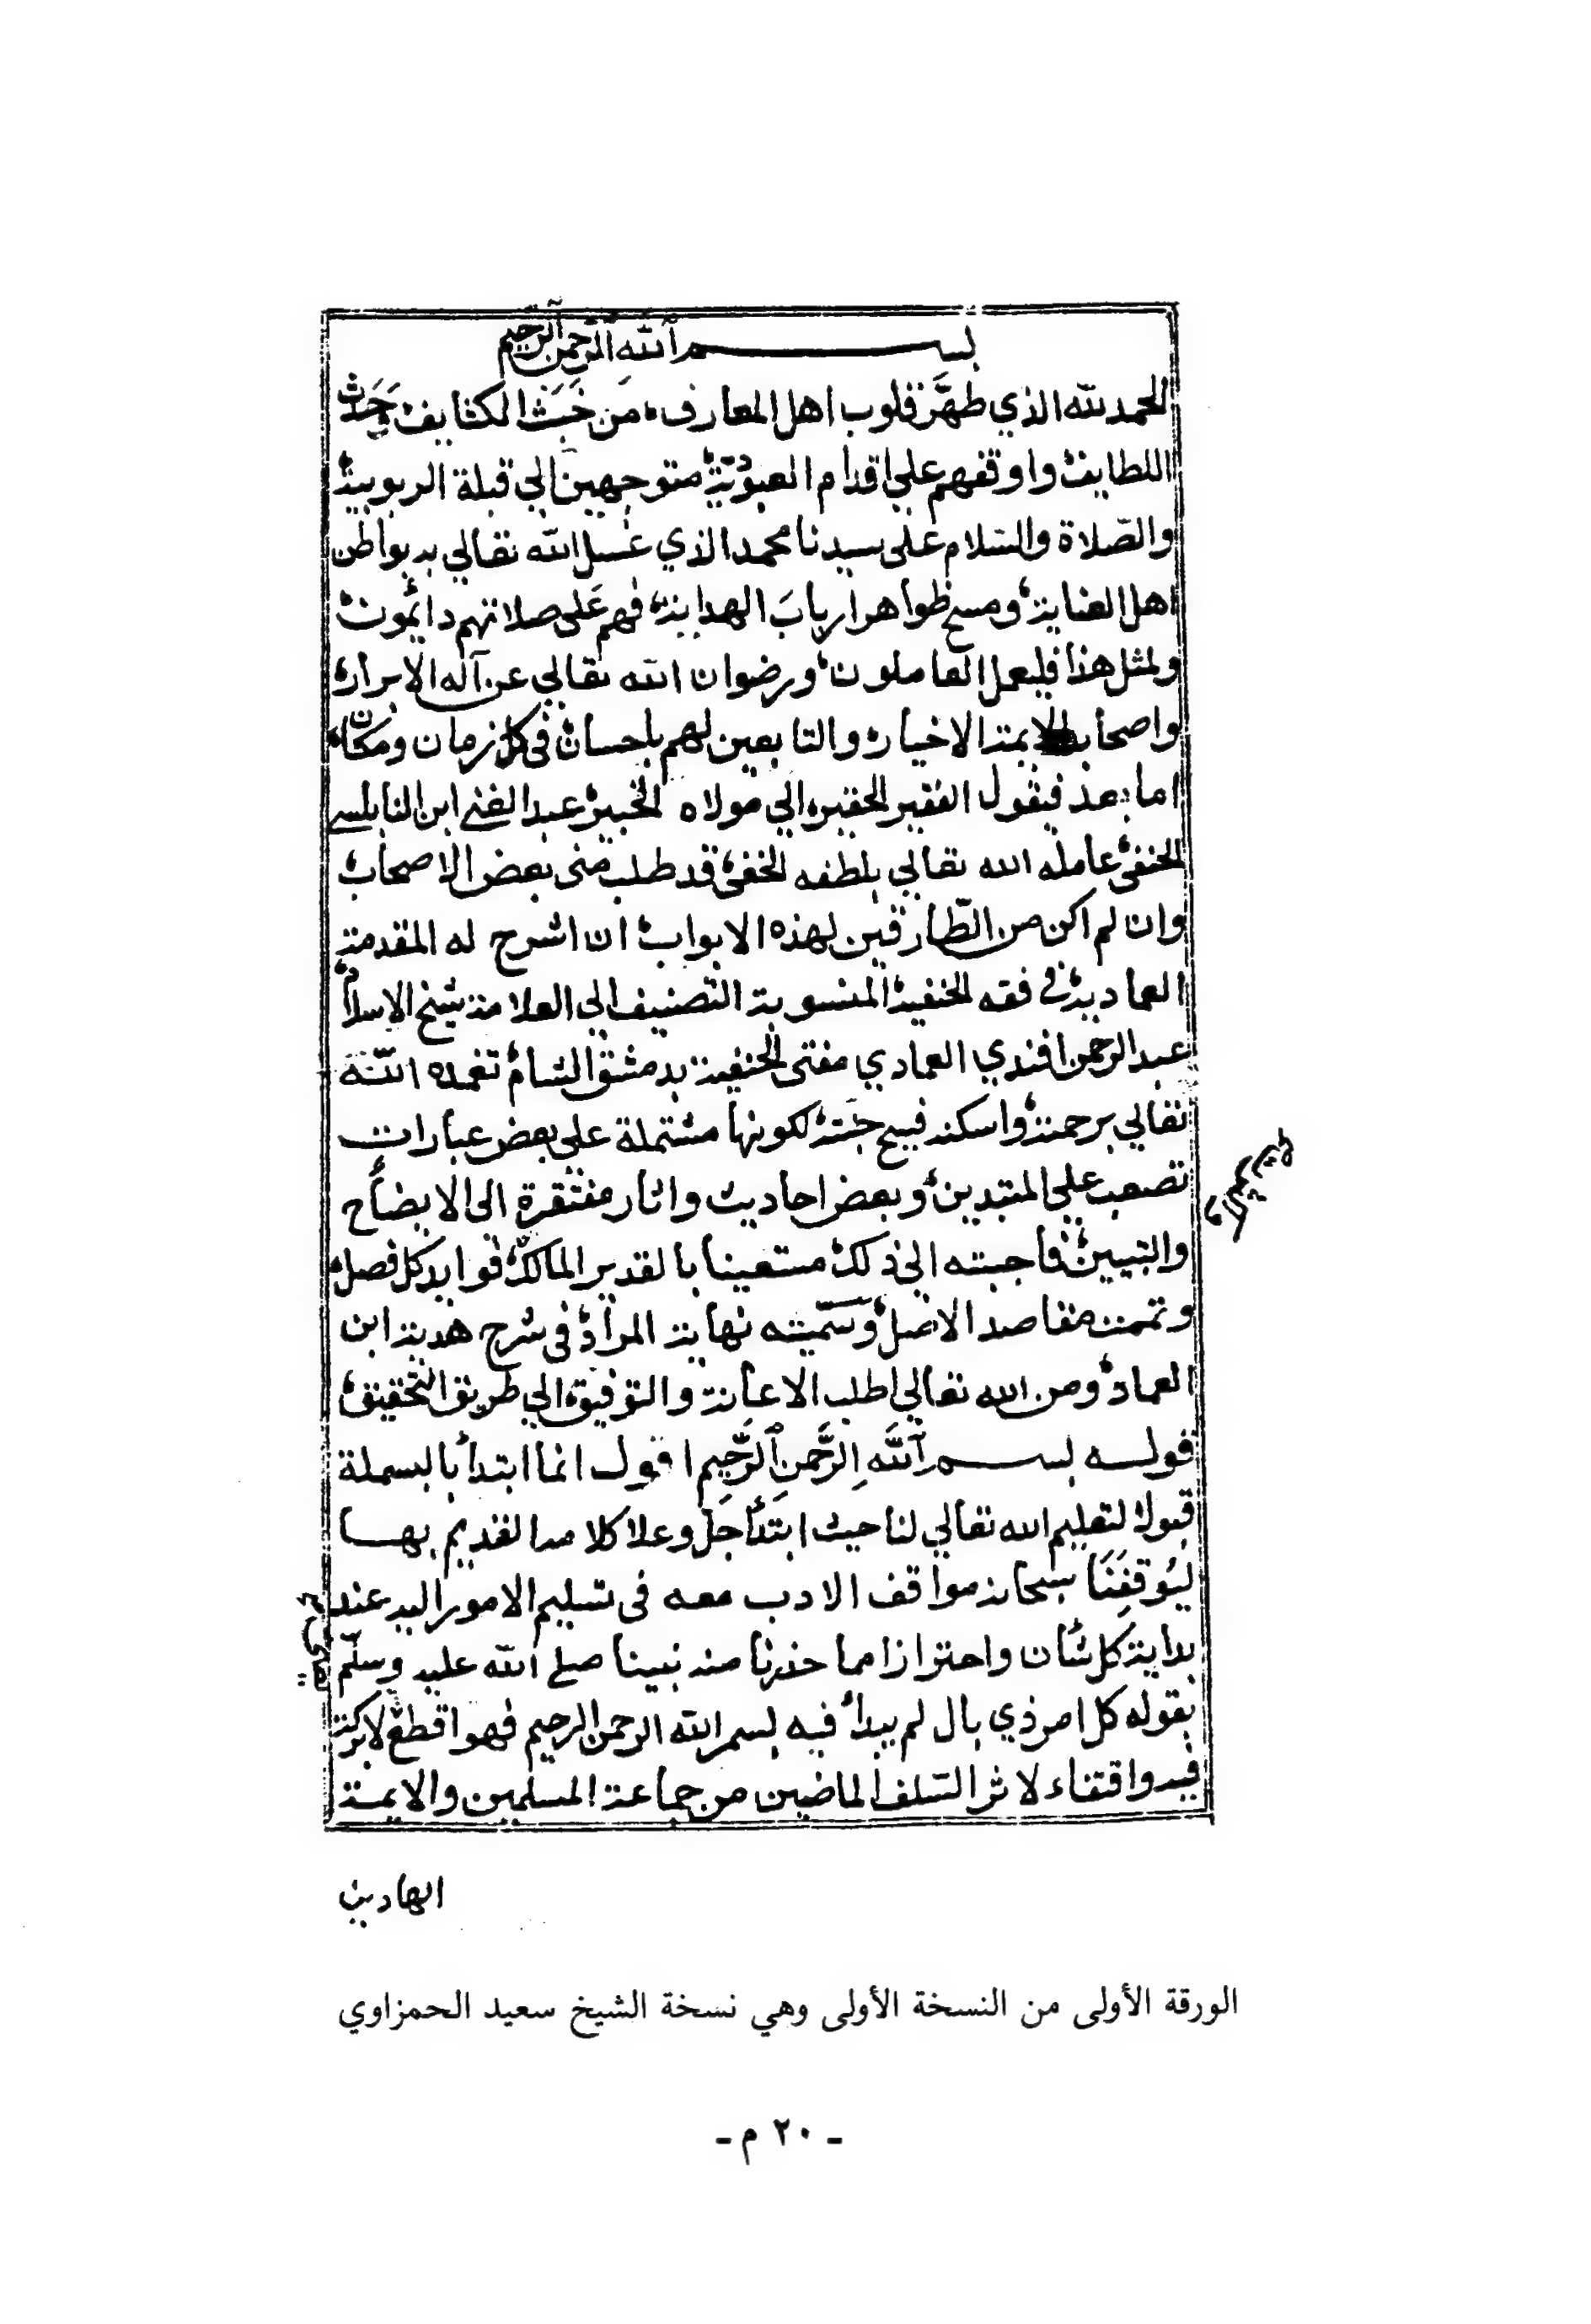 بسم الله الرحمن الرحيم
الحمد لله الذي طهَّر قلوب اهل المعارف، من خَبَث الكثايف وحَدَث
اللطايف واوقفهم علي اقدام العبوديّة متوجهين الي قبلة الربوبية
والصّلاة والسّلام على سيدنا محمد الذي غسل الله تعالي به بواطن
اهل العناية، ومسح ظواهر اربابَ الهداية، فهم عَلى صلاتهم دائمون
ولمثل هذا فليعمل العاملون، ورضوان الله تعالي عن آله الابرار،
واصحابه الايمة الاخيار، والتابعين لهم باحسان في كل زمان ومكان،
اما بعد فيقول الفقير الحقير، الي مولاه الخبير، عبد الغني ابن النابلسي
الحنفي، عامله الله تعالي بلطفه الخفي، قد طلب مني بعض الاصحاب،
وان لم اكن من الطّارقين لهذه الابواب، ان اشرح له المقدمة
العمادية في فقه الحنفية المنسوبة التصنيف الي العلامة شيخ الاسلام
عبد الرحمن افندي العمادي مفتي الحنفية بدمشق الشام تغمده اللّه
تعالي برحمته، واسكنه فسيح جنته، لكونها مشتملة على بعض عبارات
تصعب علي المبتدين، وبعض احاديث واثار مفتقرة الى الايضاح
والتبيين، فاجبته الى ذلك مستعينا بالقدير المالك، فوايد كل فصل،
وتممت مقاصد الاصل، وسمّيته نهاية المراد، في شرح هدية ابن
العماد، ومن الله تعالي اطلب الاعانة والتوفيق، الي طريق التحقيق،
قوله بسم اللَّه الرَّحمنِ الرَّحِيم اقول انما ابتدأ بالبسملة
قبولا لتعليم الله تعالي لنا حيث ابتَدأ جَلّ وعلا كلامه القديم بها
ليُوقِفَنَا سبحانه مواقف الادب معه في تسليم الامور اليه عند
بداية كل شان واحترازا مما حذرنا منه نبينا صلي الله عليه وسلّم
بقوله كل امر ذي بال لم يبدأ فيه بسم الله الرحمن الرحيم فهو اقطع لا بركة
فيه واقتفاء لاثر السّلف الماضين من جماعة المسلمين والايمة
الهادين
الورقة الأولى من النسخة الأولى وهي نسخة الشيخ سعيد الحمزاوي
ـ ٢٠ م ـ